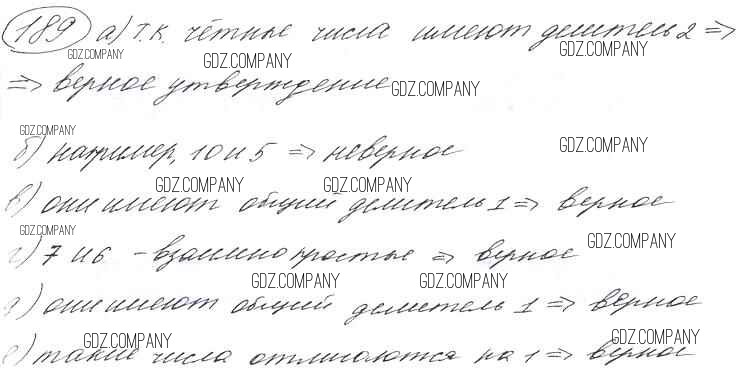 189 а) т.к. чётные числа имеют делитель 2 =>
=> верное утверждение
б) например, 10 и 5 => неверное
в) они имеют общий делитель 1 => верное
г) 7 и 6 - взаимно простые => верное
д) они имеют общий делитель 1 => верное
е) такие числа отличаются на 1 => верное
GDZ.COMPANY
GDZ.COMPANY
GDZ.COMPANY
GDZ.COMPANY
GDZ.COMPANY
GDZ.COMPANY
GDZ.COMPANY
GDZ.COMPANY
GDZ.COMPANY
GDZ.COMPANY
GDZ.COMPANY
GDZ.COMPANY
GDZ.COMPANY
GDZ.COMPANY